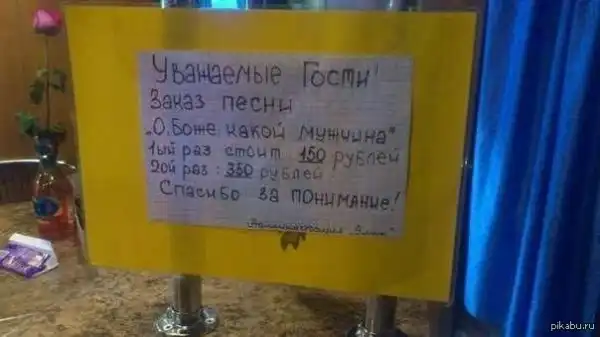 Уважаемые Гости!
Заказ песни
„О, Боже какой мужчина"
1ый раз стоит 150 рублей
2ой раз: 350 рублей
Спасибо за понимание!
Администрация
pikabu.ru